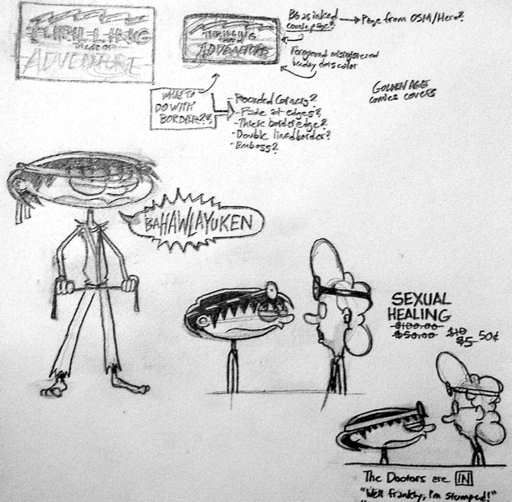 THRILLING
TALES OF
ADVENTURE
THRILLING
TALES OF
ADVENTURE
BG as inked
comic page?
Page from OSM/Hero?
Foreground misregistered
color
GOLDEN AGE
comics covers
WHAT TO
DO WITH
BORDER??
- Rounded Corners?
- Fade at edges?
- Thick border edge?
- Double lined border?
- Emboss?
BAHAWLAYUKEN
SEXUAL
HEALING
$100.00
$50.00
$10
$5
50¢
The Doctors are IN
"Well frankly, I'm stumped!"